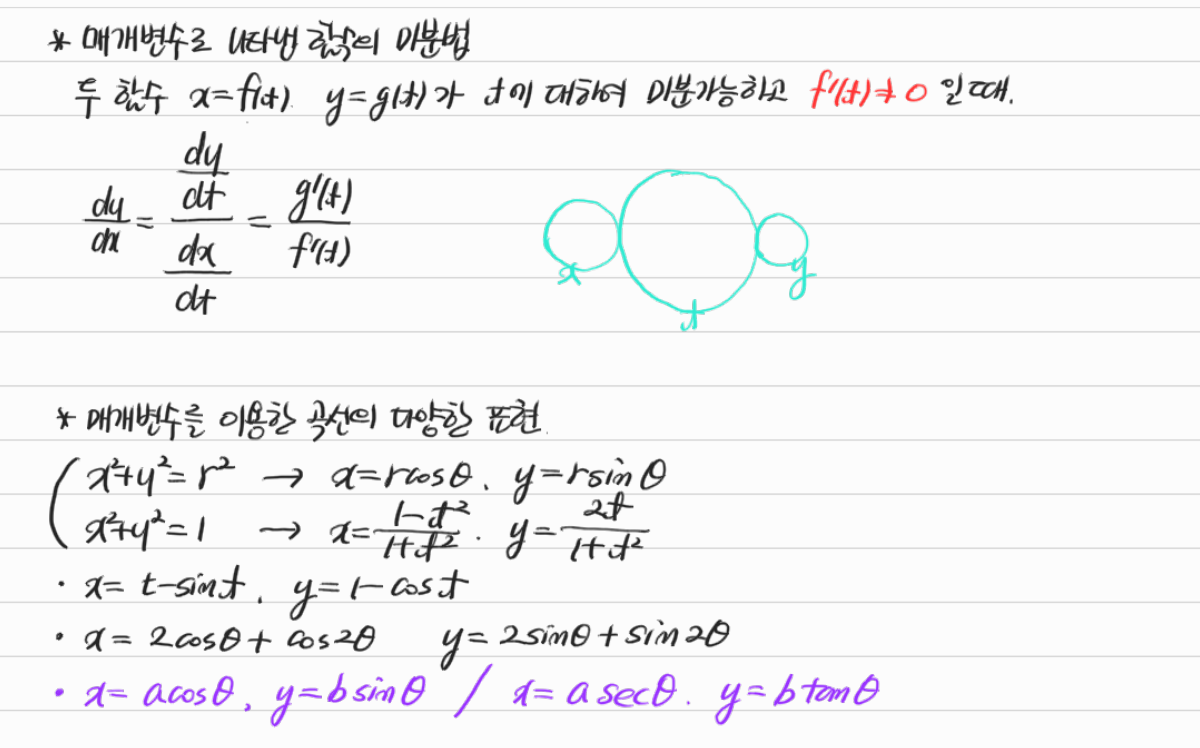 * 매개변수로 나타낸 함수의 미분법
두 함수 x=f(t). y=g(t)가 t에 대하여 미분가능하고 f'(t)≠0 일때.
dy/dx = (dy/dt)/(dx/dt) = g'(t)/f'(t)
x t y
* 매개변수를 이용한 곡선의 다양한 표현.
x²+y²=r² → x=rcosθ. y=rsinθ
x²+y²=1 → x=(1-t²)/(1+t²). y=2t/(1+t²)
· x= t-sint. y=1-cost
· x= 2cosθ+cos2θ y=2sinθ+sin2θ
· x= acosθ, y=bsinθ / x=asecθ. y=btanθ